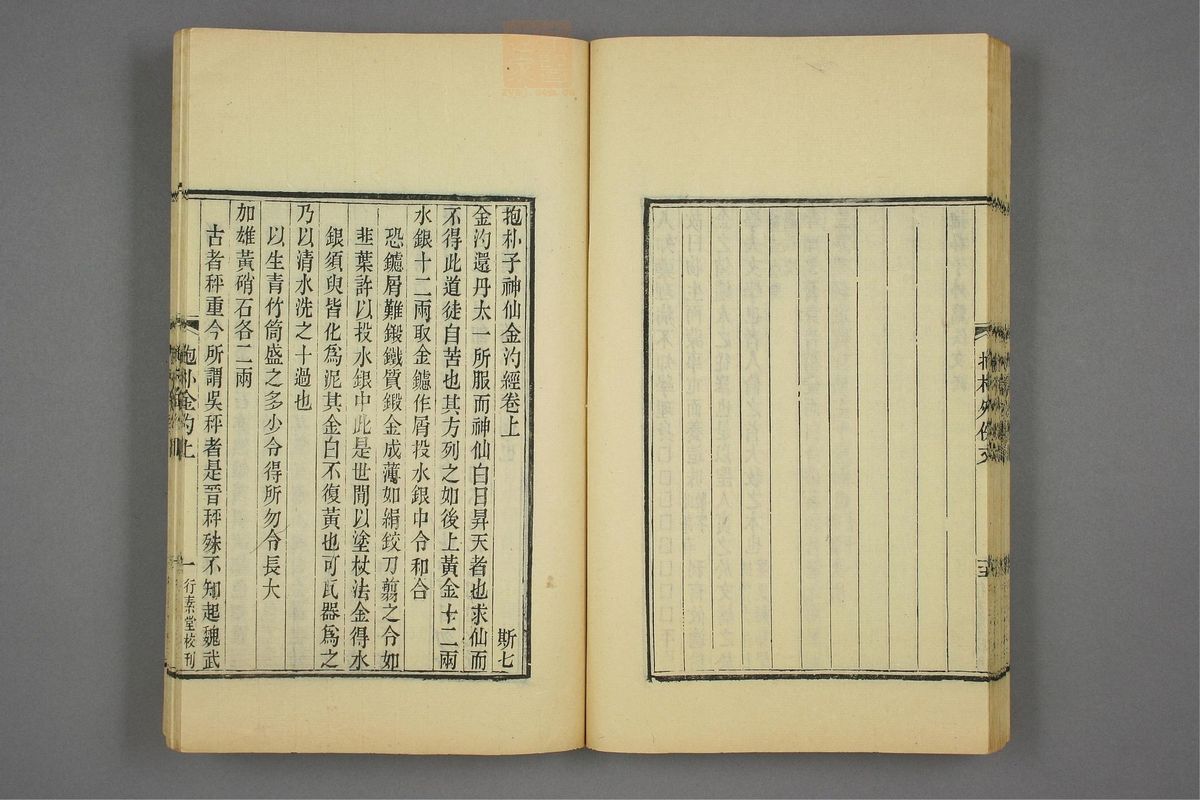 抱朴外佚文
抱朴子神仙金汋經卷上
斯七
金汋還丹太一所服而神仙白日昇天者也求仙而
不得此道徒自苦也其方列之如後上黃金十二兩
水銀十二兩取金鑢作屑投水銀中令和合
恐鑢屑難鍛鐵質鍛金成薄如絹鉸刀翦之令如
韭葉許以投水銀中此是世閒以塗杖法金得水
銀須臾皆化爲泥其金白不復黃也可瓦器爲之
乃以清水洗之十過也
以生青竹筒盛之多少令得所勿令長大
加雄黃硝石各二兩
古者秤重今所謂吳秤者是晉秤殊不知起魏武
抱朴金汋上
一
行素堂校刊